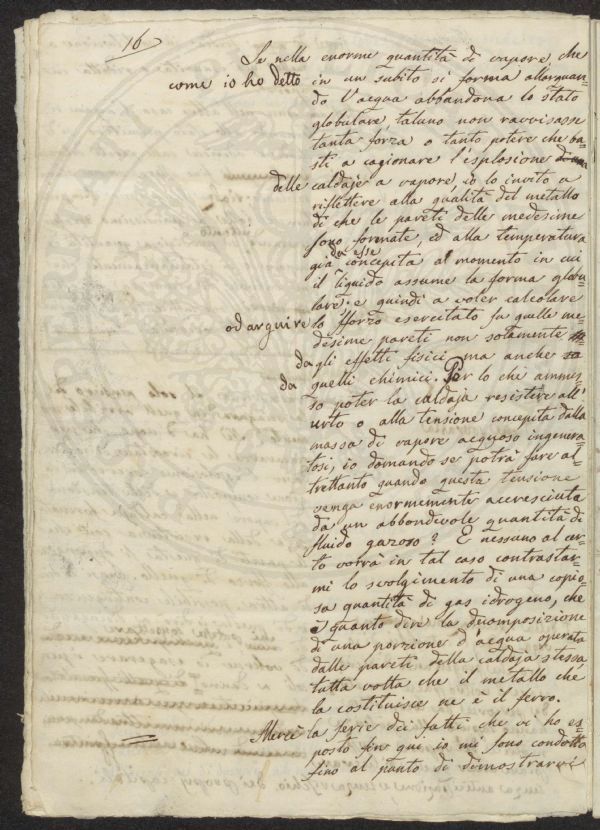 16
Se nella enorme quantità di vapore, che
come io ho detto in un subito si forma allorquan-
do l'acqua abbandona lo stato
globulare taluno non ravvisasse
tanta forza o tanto potere che ba-
sti a cagionare l'esplosione
delle caldaje a vapore, io lo invito a
riflettere alla qualità del metallo
di che le pareti delle medesime
sono formate, ed alla temperatura
da esse
già concepita al momento in cui
il liquido assume la forma globu-
lare; e quindi a voler calcolare
od arguire lo sforzo esercitato su quelle me-
desime pareti non solamente
dagli effetti fisici ma anche
da quelli chimici. Per lo che ammes-
so poter la caldaja resistere all'
urto o alla tensione concepita dalla
massa di vapore acquoso ingenera-
tosi, io domando se potrà fare al-
trettanto quando questa tensione
venga enormemente accresciuta
da un abbondevole quantità di
fluido gazoso? E nessuno al cer-
to vorrà in tal caso contrastar-
mi lo svolgimento di una copio-
sa quantità di gas idrogeno, che
è quanto dire la decomposizione
di una porzione d'acqua operata
dalle pareti della caldaja stessa
tutta volta che il metallo che
la costituisce ne è il ferro.
Mercè la serie dei fatti che vi ho es-
posto fin qui io mi sono condotto
fino al punto di dimostrarvi